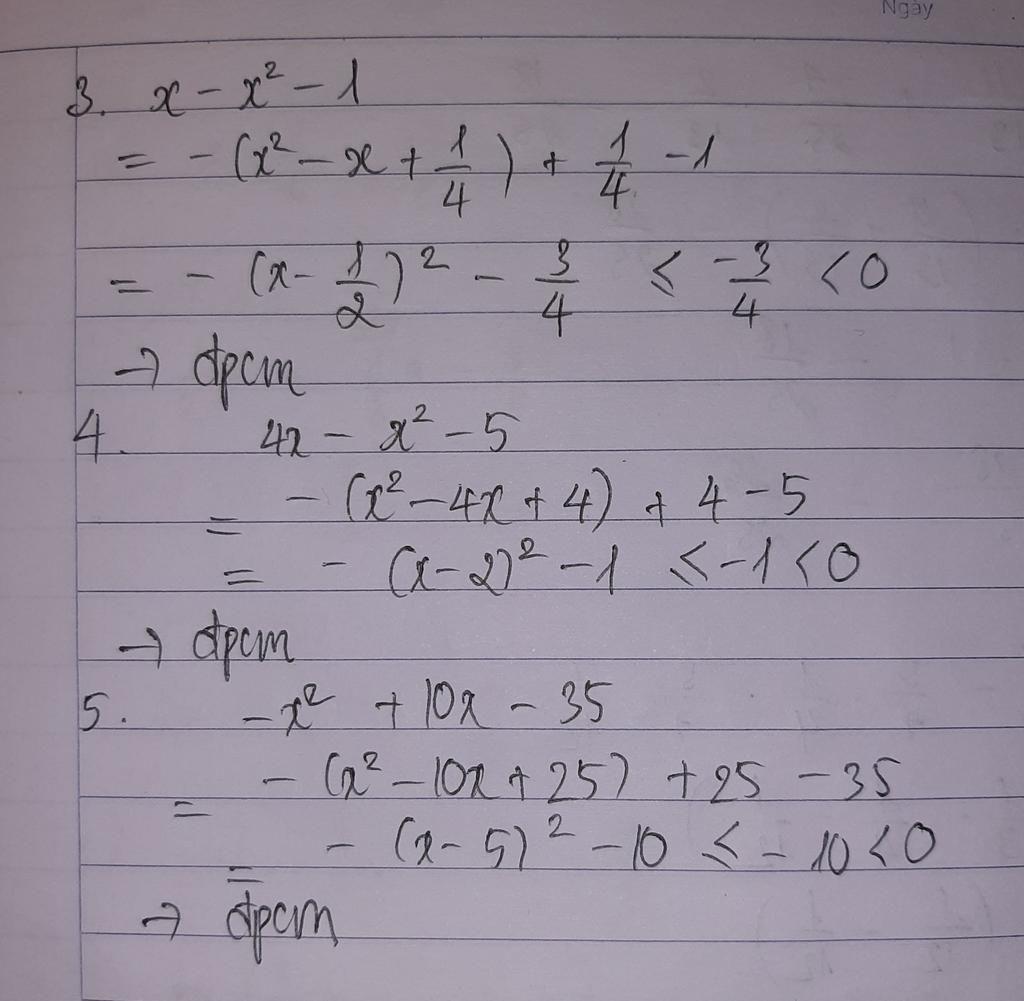 Ngày
3. x - x² - 1
= - (x² - x + 1/4) + 1/4 - 1
= - (x - 1/2)² - 3/4 ≤ -3/4 < 0
→ đpcm
4. 4x - x² - 5
= - (x² - 4x + 4) + 4 - 5
= - (x - 2)² - 1 ≤ -1 < 0
→ đpcm
5. -x² + 10x - 35
= - (x² - 10x + 25) + 25 - 35
= - (x - 5)² - 10 ≤ -10 < 0
→ đpcm